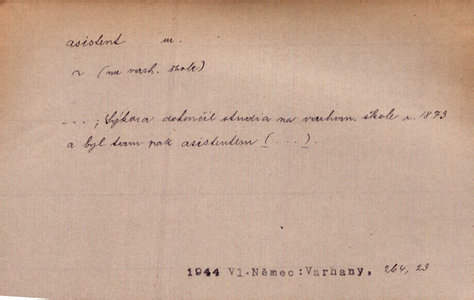 asistent m.
~ (na varh. škole)
...; Sýkora dokončil studia na varhan. škole r. 1873
a byl tam pak asistentem (...).
1944 Vl. Němec: Varhany, 264, 23